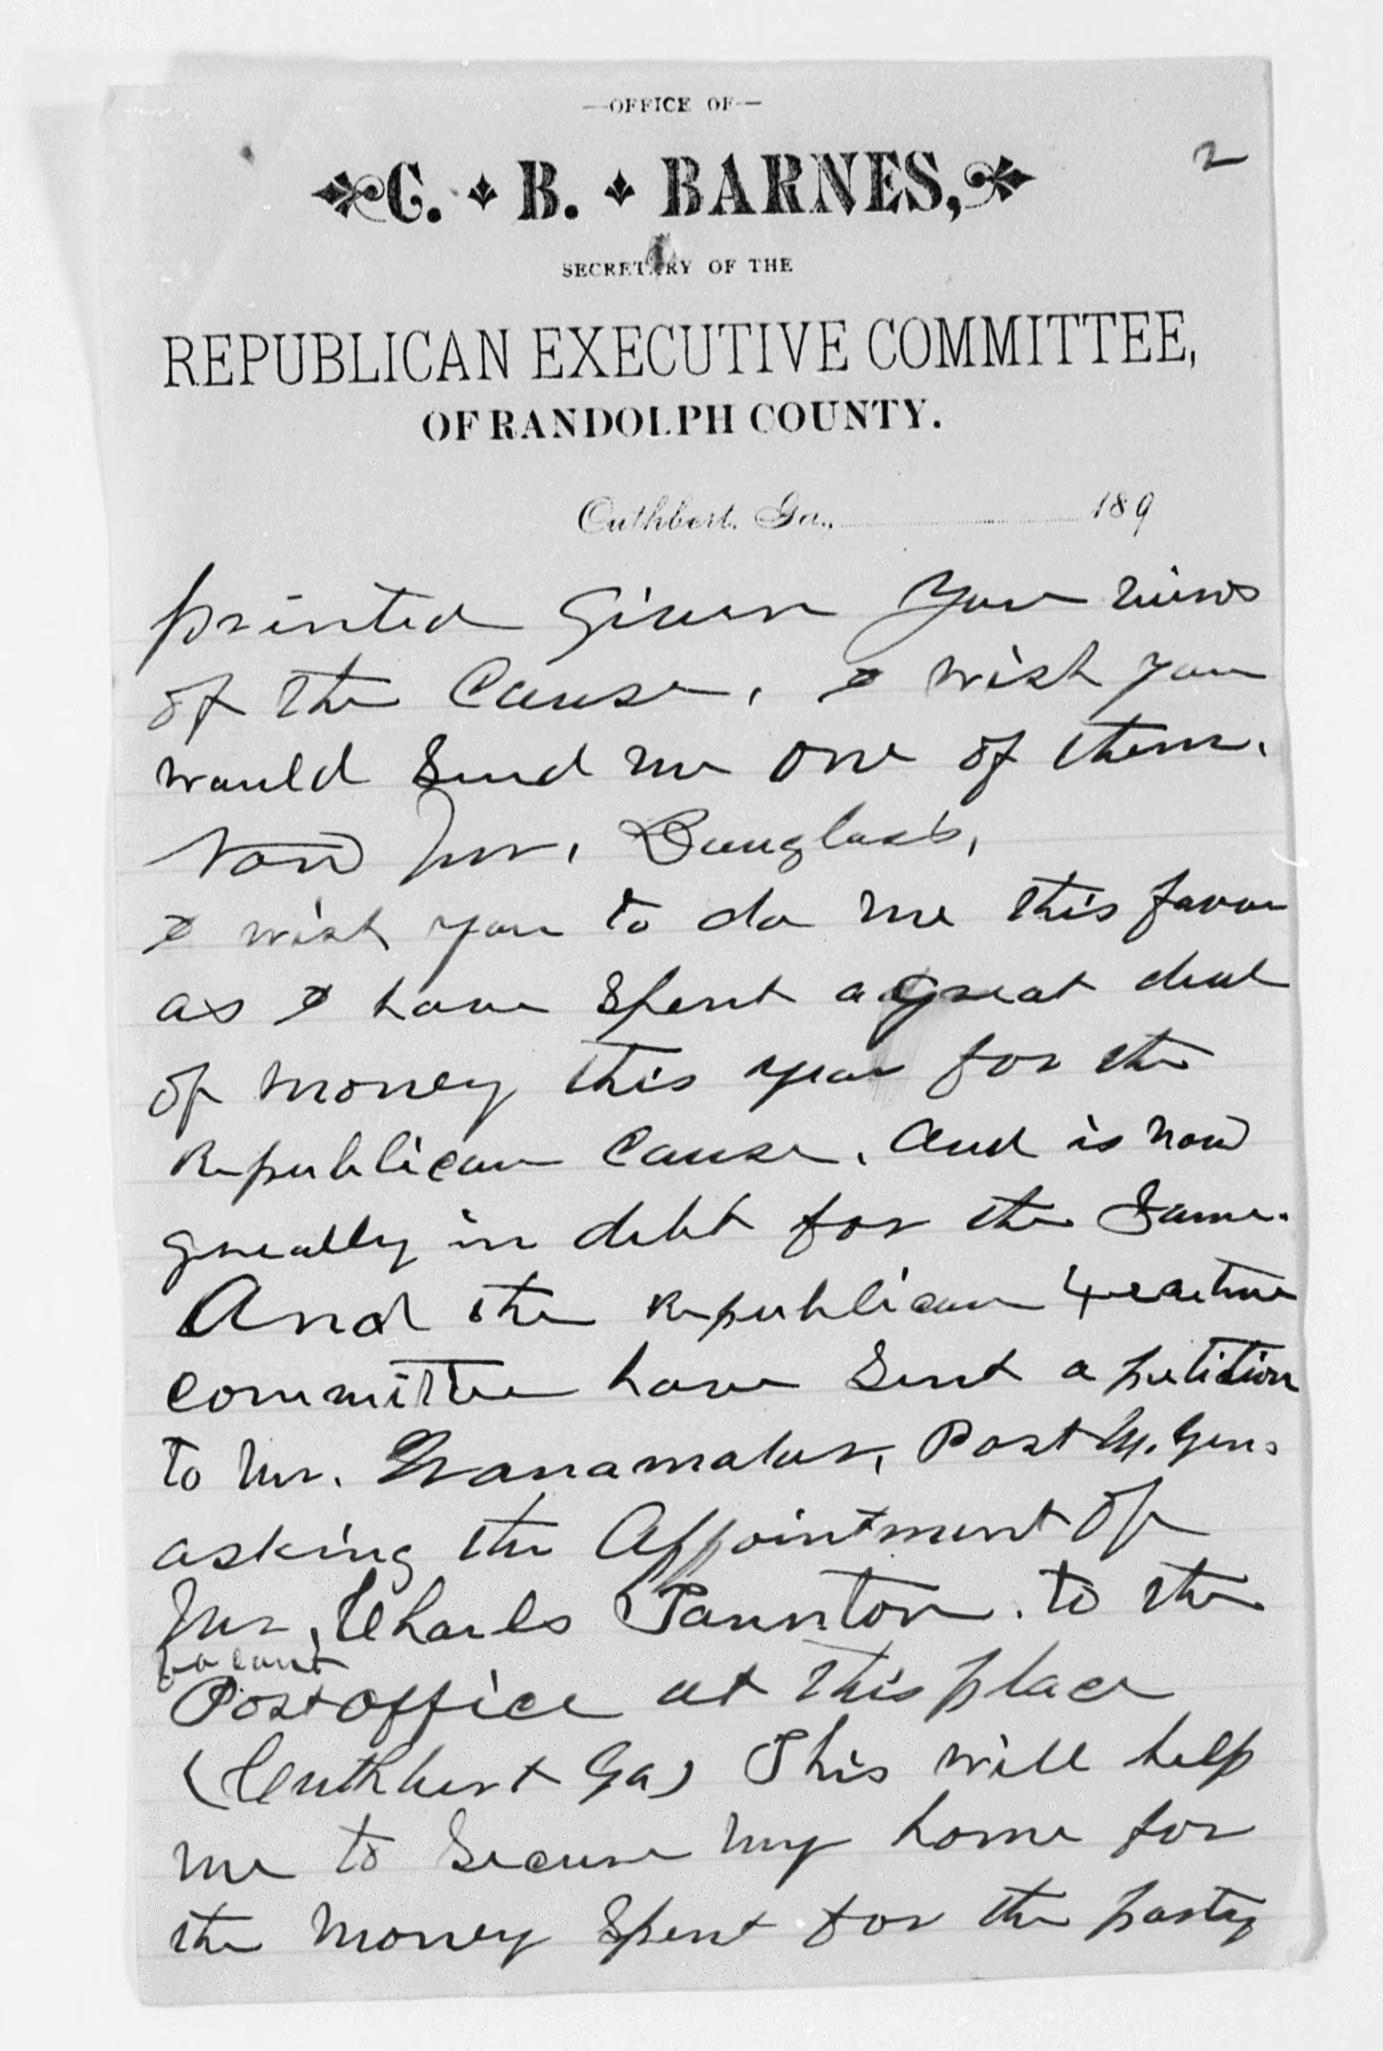 —OFFICE OF—
2
C. B. BARNES,
SECRETARY OF THE
REPUBLICAN EXECUTIVE COMMITTEE,
OF RANDOLPH COUNTY.
Cuthbert, Ga., 189
printed Given Your views
of the Cause, I wish you
would Send me one of them.
Now Mr, Douglass,
I wish you to do me this favor
as I have Spent a great deal
of money this year for the
Republican Cause, and is now
greatly in debt for the Same.
And the Republican
committee have Sent a petition
to Mr. Wanamaker, Post M. Gen.
asking the Appointment of
Mr, Charles to the
vacant
Postoffice at this place
(Cuthbert Ga) This will help
me to Secure my home for
the money Spent for the party